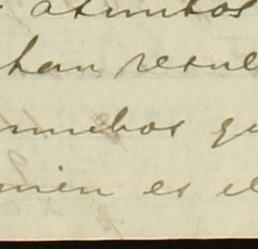 asuntos
han resul
muchos qu
es el